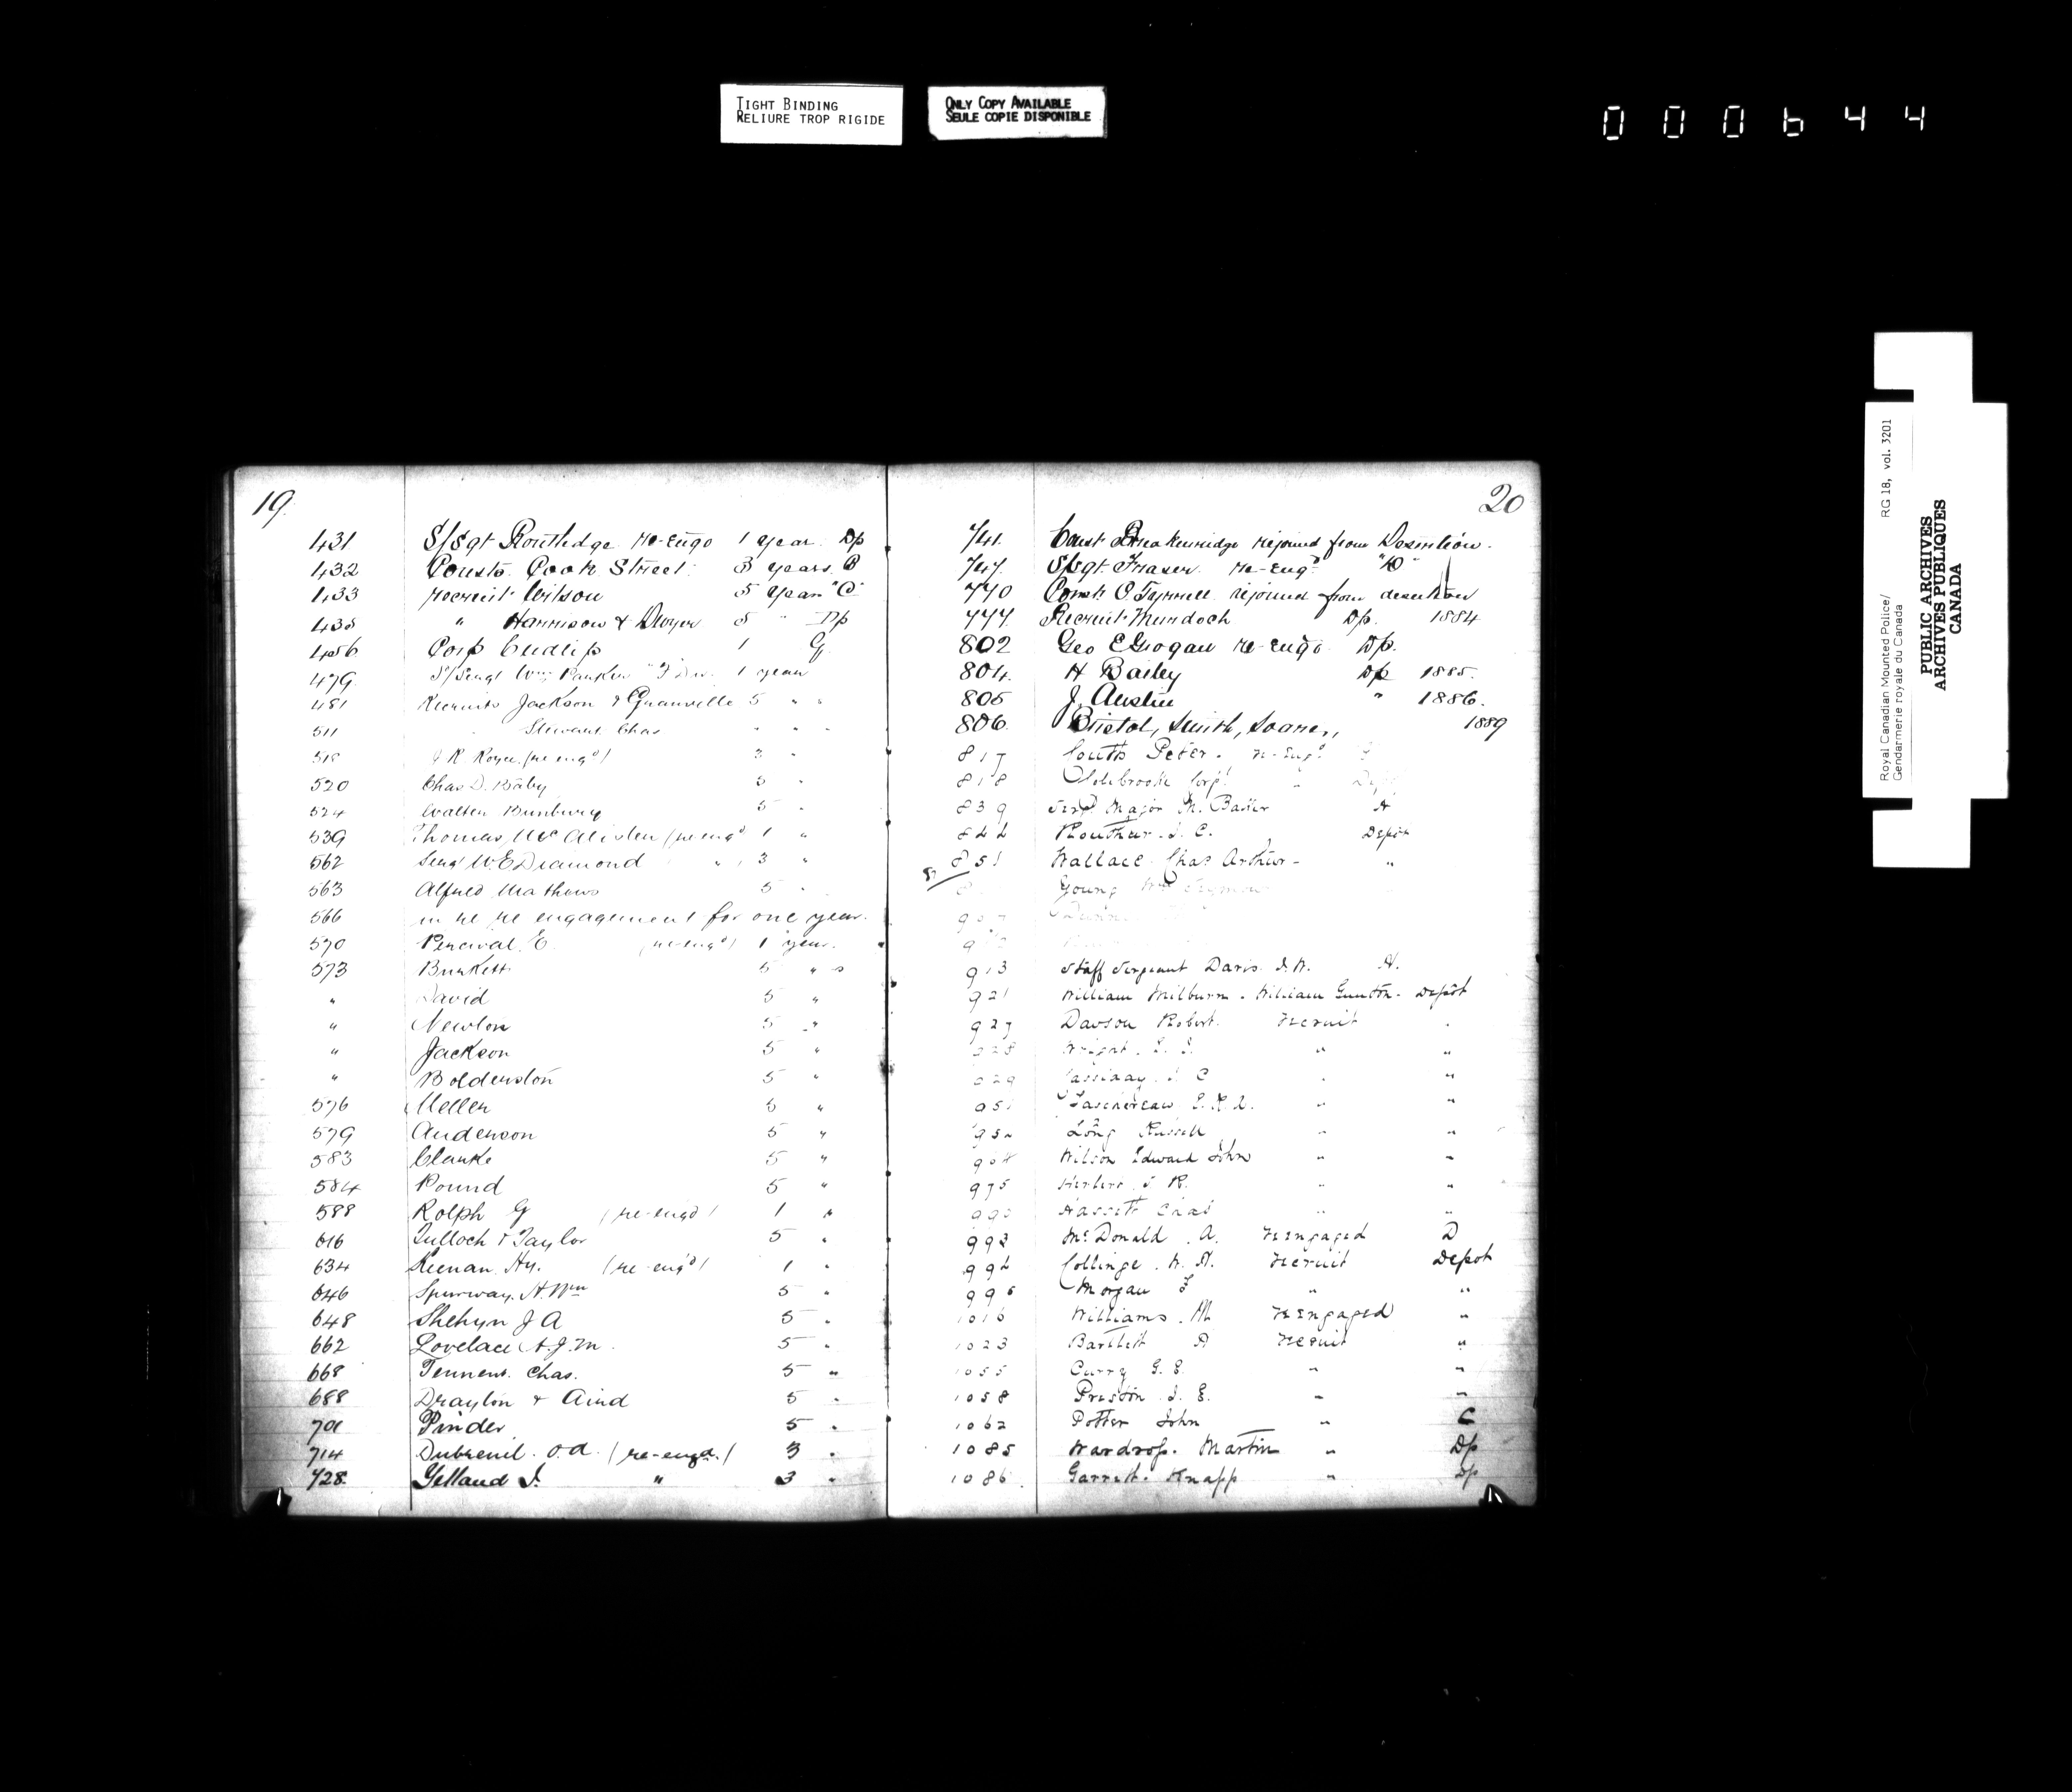 TIGHT BINDING
RELIURE TROP RIGIDE
ONLY COPY AVAILABLE
SEULE COPIE DISPONIBLE
000644
Royal Canadian Mounted Police/ RG 18, vol. 3201
Gendarmerie royale du Canada
PUBLIC ARCHIVES
ARCHIVES PUBLIQUES
CANADA
19.
431 S/Sgt Routledge re-engd 1 year Dp
432 Consts. Cook Street 3 years B
433 recruit Wilson 5 years "C"
438 " Harrison & Dwyer 5 " Dp
456 Corp Cudlip 1 G
479 S/Sergt Wm Parker Div. 1 year
481 Recruits Jackson & Granville 5 " "
511 Stewart Chas " " "
(re engd) 3 "
520 Chas D. Baby 3 "
524 Walter Bunbury 5 "
539 Thomas McAlister (re engd) 1 "
562 Sergt W.E Diamond " 3 "
563 Alfred Mathews 5 "
566 in re re engagement for one year.
570 Percival E. (re-engd) 1 year.
573 Burkett 5 " s
" David 5 "
" Newton 5 "
" Jackson 5 "
" Bolderston 5 "
576 Meller 5 "
579 Anderson 5 "
583 Clarke 5 "
584 Pound 5 "
588 Rolph G (re-engd) 1 "
616 Tulloch & Taylor 5 "
634 Keenan Hy. (re-engd) 1 "
646 Spurway. H. Wm 5 "
648 Shehyn J A 5 "
662 Lovelace A.J.M. 5 "
668 Tennent. Chas. 5 "
688 Drayton & Aird 5 "
701 Pinder 5 "
714 Dubreuil. O.A. (re-engd.) 3 "
728 Yelland J. " 3 "
20
741. Const Breakenridge rejoined from Desertion.
747. S/Sgt. Fraser re-engd "D"
770 Const. O. Tyrrell rejoined from desertion
777. Recruit Murdoch Dp. 1884
802 Geo C Grogan re-engd Dp.
804. H Bailey Dp 1885.
805 J. Austin " 1886.
806. Bristol, Smith, Soares, 1889
817 Coutts Peter. re-engd
818 Corpl " Dep
839 Sergt Major M. Baker A
844 Routhier. J. C. Depot
851 Wallace Chas Arthur - "
Young Wm Seymour
913 Staff Sergeant Davis J.W. A.
921 William Milburn. William Gunton. Depôt
927 Davson Robert. recruit "
928 Wright. " "
929 Cassiday. J. C " "
951 Taschereau " "
952 Long Russell " "
Wilson Edward John " "
975 Herbert J R. " "
Hassett Chas " "
993 McDonald. A. reengaged D
994 Collinge. W. A. recruit Depot
995 Morgan F " "
1016 Williams. M reengaged "
1023 Bartlett A recruit "
1055 Curry G. E. " "
1058 Preston. J. E. " "
1062 Potter John " C
1085 Wardrop. Martin " Dp
1086 Garrett. Knapp " Dp